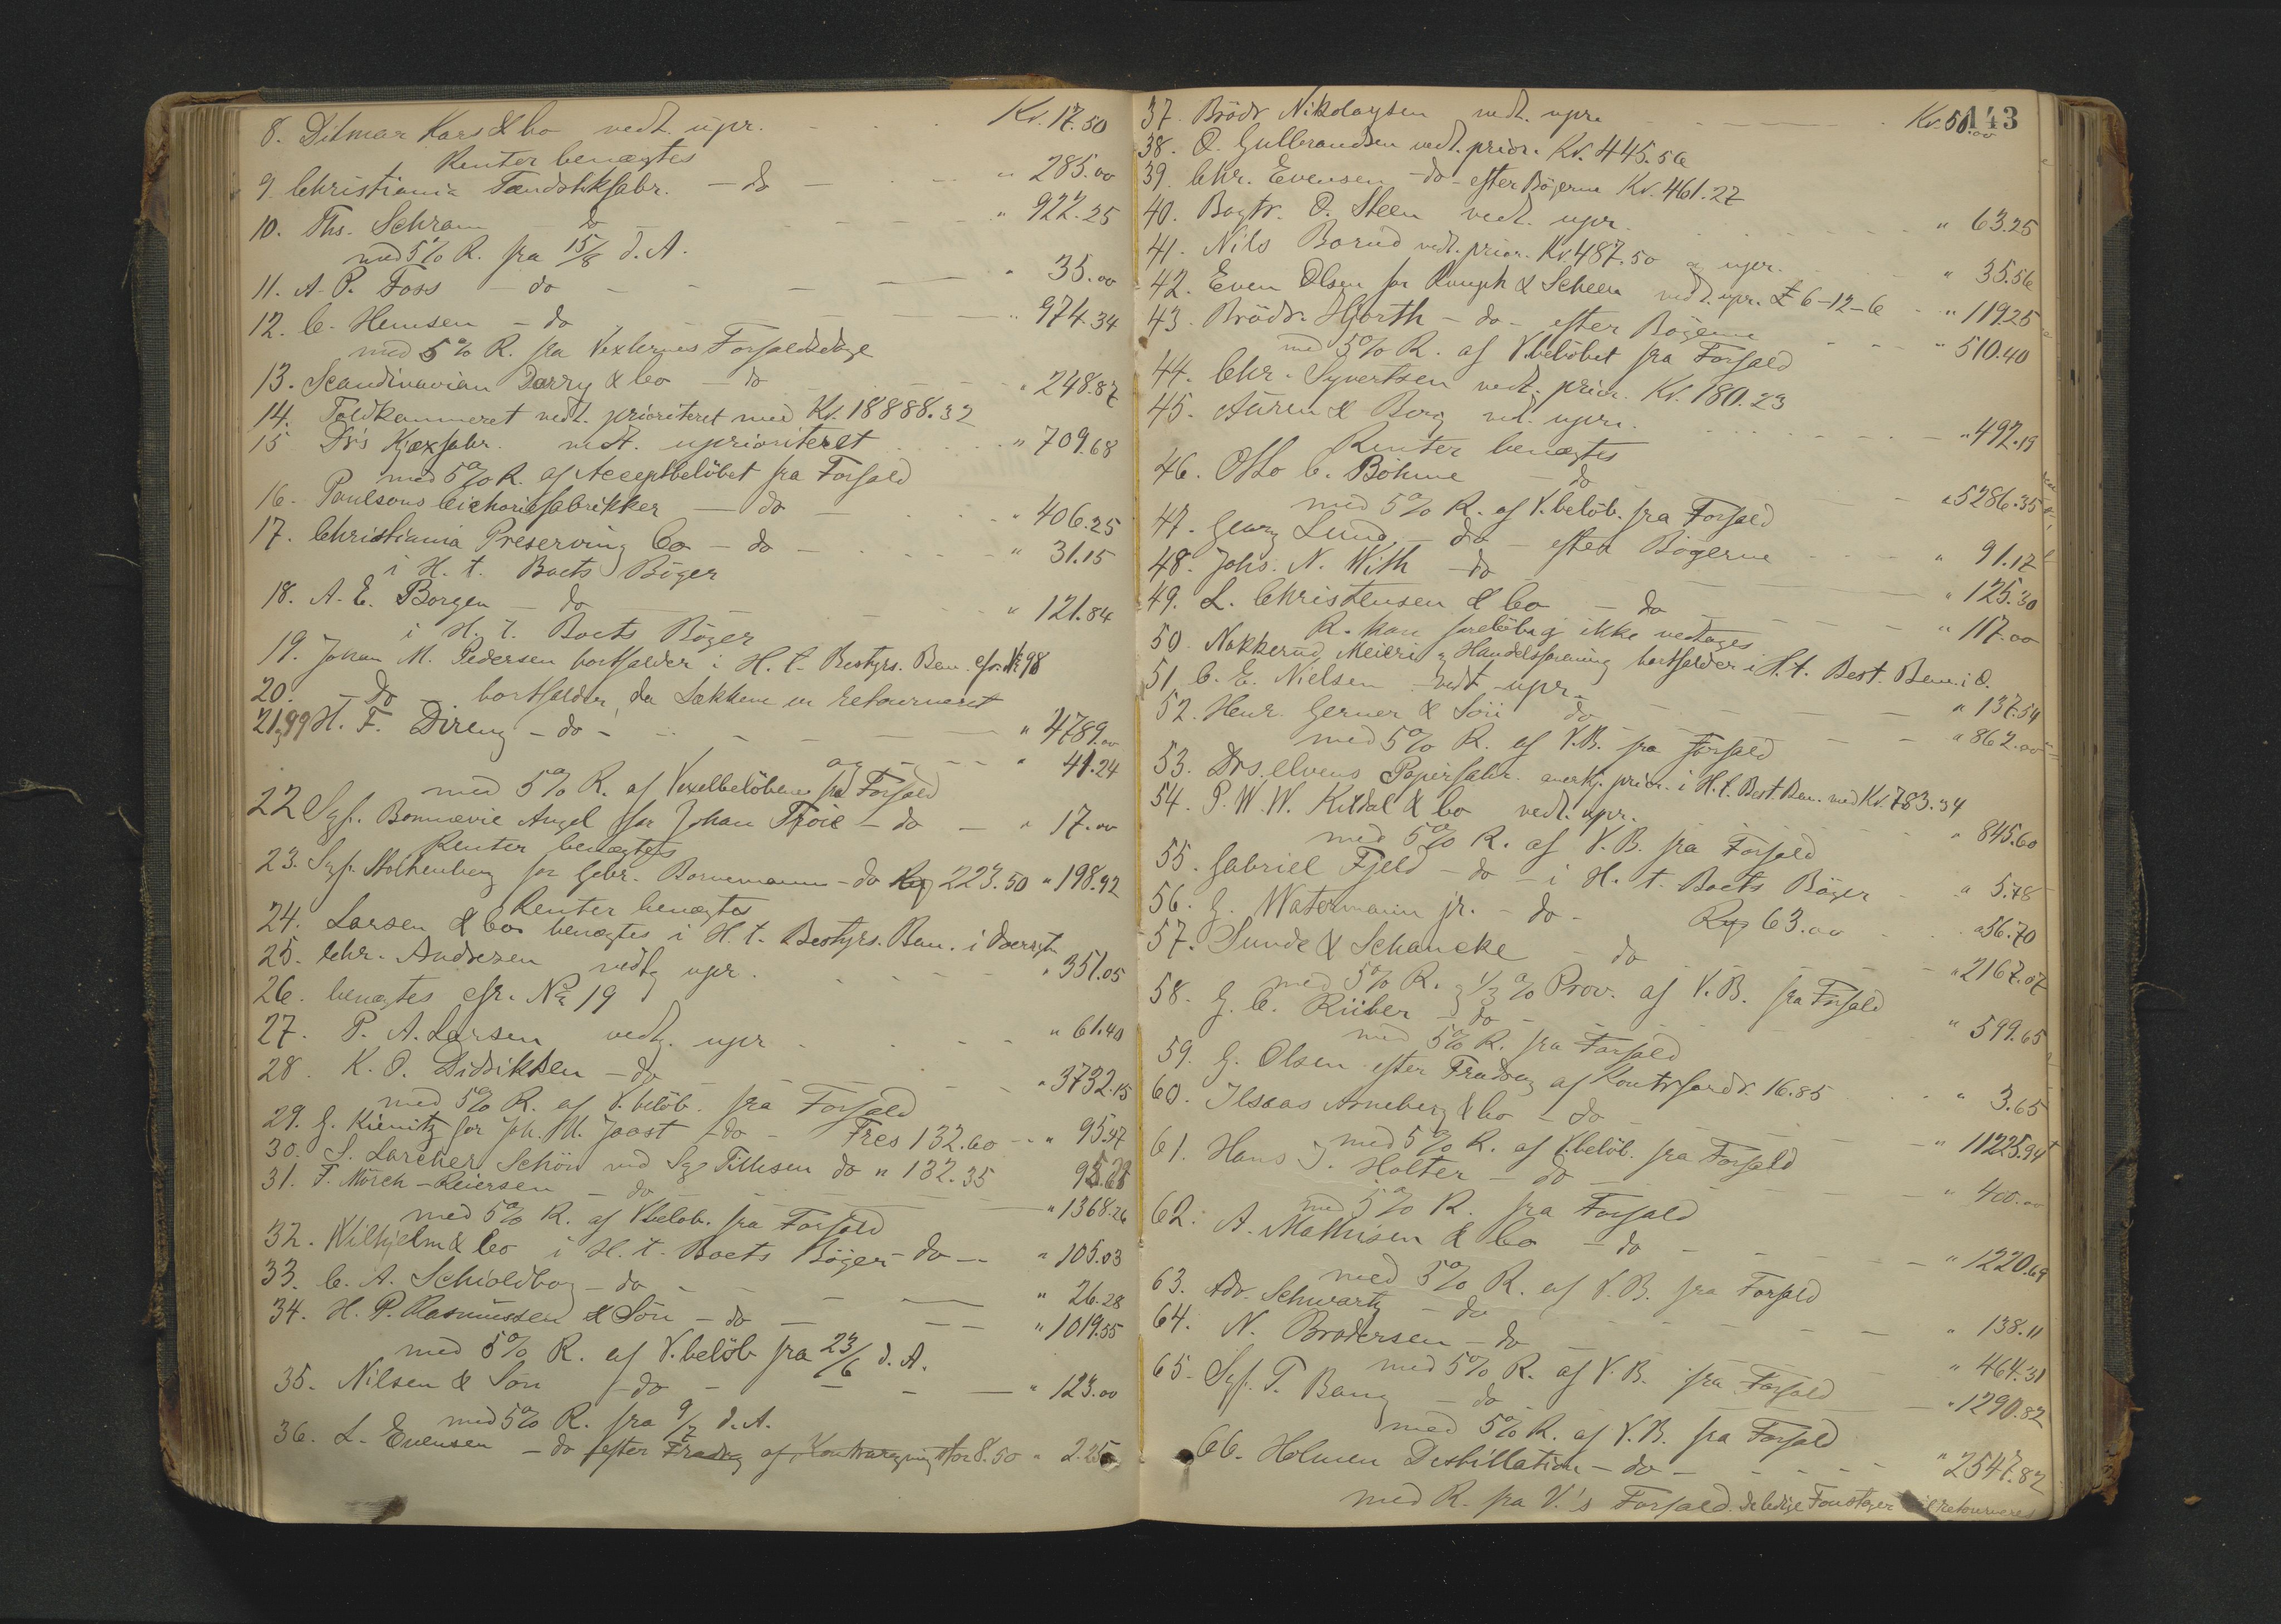 8. Ditmar Kars & Co vedt. upr. Kr. 17.50
Renter benægtes
9. Christiania Tændstikfabr. - do - " 285.00
10. Ths. Schram - do - " 922.25
med 5% R. fra 15/8 d. A.
11. A. P. Foss - do - " 35.00
12. C. Hemsen - do - " 974.34
med 5% R. fra Vexlernes Forfaldsdage
13. Scandinavian Darry & Co - do - " 248.87
14. Toldkammeret vedt. prioriteret med Kr. 18888.32
15 Dr's Kjexfabr. vedt. uprioriteret " 709.68
med 5% R. af Acceptbelöbet fra Forfald
16. Paulsons Cichoriefabrikker - do - " 406.25
17. Christiania Preserving Co - do - " 31.15
i H. t. Boets Böger
18. A. E. Borgen - do - " 121.84
i H. t. Boets Böger
19. Johan M. Pedersen bortfalder i H. t. Bestyrs. Bem. cfr. № 98
20. - Do - bortfalder, da Sækkene er retourneret
21 & 99 H. F. Direng - do - " 4789.00
og " 41.24
med 5% R. af Vexelbelöbene fra Forfald
22 Sgf. Bonnevie Angel for Johan Tröie - do - " 17.00
Renter benægtes
23. Sgf. Stoltenberg for Gebr. Bornemann - do 223.50 " 198.92
Renter benægtes
24. Larsen & Co benægtes i H. t. Bestyrs. Bem. i Oversigten
25. Chr. Andresen vedtg upr. " 351.05
26. benægtes cfr. № 19
27. P. A. Larsen vedtg. upr " 61.40
28. K. O. Didriksen - do " 3732.15
med 5% R. af V.belöb. fra Forfald
29. G. Kienitz for Joh. M. Joost - do - Frcs 132.60 - " 95.47
30. S. Larcher Schön ved Sgf Tillisen do " 132.35
31. F. Mörch-Reiersen - do - " 1368.26
med 5% R. af V.belöb. fra Forfald
32. Wilhjelm & Co i H. t. Boets Böger - do - " 105.03
33. C. A. Schioldborg - do - " 26.28
34. H. P. Rasmussen & Sön - do - " 1019.55
med 5% R. af V.belöb fra 23/6 d. A.
35. Nilsen & Sön - do - " 123.00
med 5% R. fra 9/7 d. A.
36. L. Evensen - do efter Fradrag af Kontraregning stor 8.50 " 2.25
143
37. Brödr Nikolaysen vedt. upr. Kr. 50.00
38. O. Gulbrandsen vedt. prior. Kr. 445.56
39. Chr. Evensen - do - efter Bögerne Kr. 461.27
40. Bogtr. O. Steen vedt. upr. " 63.25
41. Nils Borud vedt. prior. Kr. 487.50 og upr. " 35.56
42. Even Olsen for Rumph & Scheer vedt. upr. £ 6-12-6 " 119.25
43. Brödr. Hjorth - do - efter Bögerne " 510.40
med 5% R. af V.belöbet fra Forfald
44. Chr. Syvertsen vedt. prior. Kr. 180.23
45. Auren & Borg vedt. upr. " 492.19
Renter benægtes
46. Otto C. Böhme - do " 5286.35
med 5% R. af V.belöb. fra Forfald
47. Georg Lund - do - efter Bögerne " 91.12
48. Johs. N. With - do - " 125.30
49. L. Christensen & Co - do - " 117.00
R. kan foreløbig ikke vedtages
50. Nakkerud Meieri & Handelsforening bortfalder i H. t. Best. Bem. i O.
51. C. E. Nielsen vedt upr. " 137.54
52. Henr. Gerner & Sön do - " 862.00
med 5% R. af V.B. fra Forfald
53. Drs.elvens Papirfabr. anerkj. prior. i H. t. Best. Bem. med Kr. 783.34
54. P. W. W. Kildal & Co vedt. upr. " 845.60
med 5% R. af V.B. fra Forfald
55. Gabriel Fjeld - do - i H. t. Boets Böger " 5.48
56. G. Watermann jr. - do - 63.00 " 56.70
57. Sunde & Schancke - do - " 2167.07
med 5% R. og 1/3 % Prov. af V.B. fra Forfald
58. G. C. Rüber - do - " 599.65
med 5% R. fra Forfald
59. G. Olsen efter Fradrag af Kontrafordr. 16.85 " 3.65
60. Ilsaas Arneberg & Co - do - " 11225.94
med 5% R. af V.belöb. fra Forfald
61. Hans J. Holter - do - " 400.00
med 5% R. fra Forfald
62. A. Mathisen & Co - do - " 1220.69
med 5% R. af V.B. fra Forfald
63. Adv. Schwartz - do " 138.11
64. N. Brodersen - do - " 464.31
med 5% R. af V.B. fra Forfald
65. Sgf. T. Bang - do - " 1290.82
med 5% R. af V.B. fra Forfald
66. Holmen Destillation - do - " 2547.82
med R. fra V.'s Forfald. De ledige Foustager retourneres